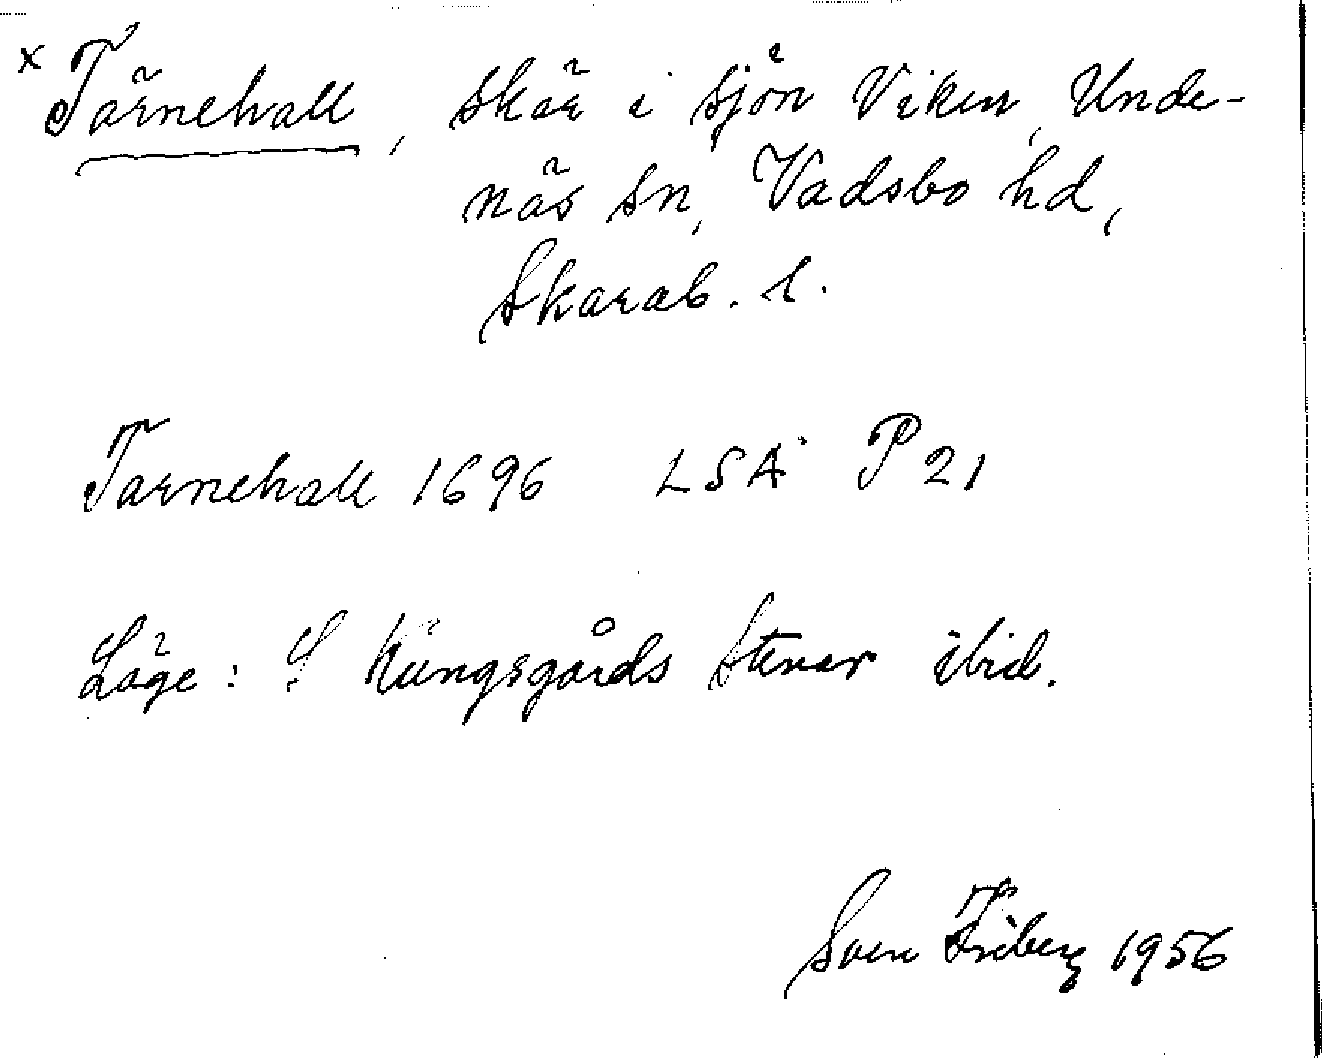 x Tärnehall, skär i sjön Viken, Unde-
näs sn, Vadsbo hd,
Skarab. l.
Tarnehall 1696 LSA P 21
Läge: S Kungsgårds Stenar ibid.
Sven Friberg 1956